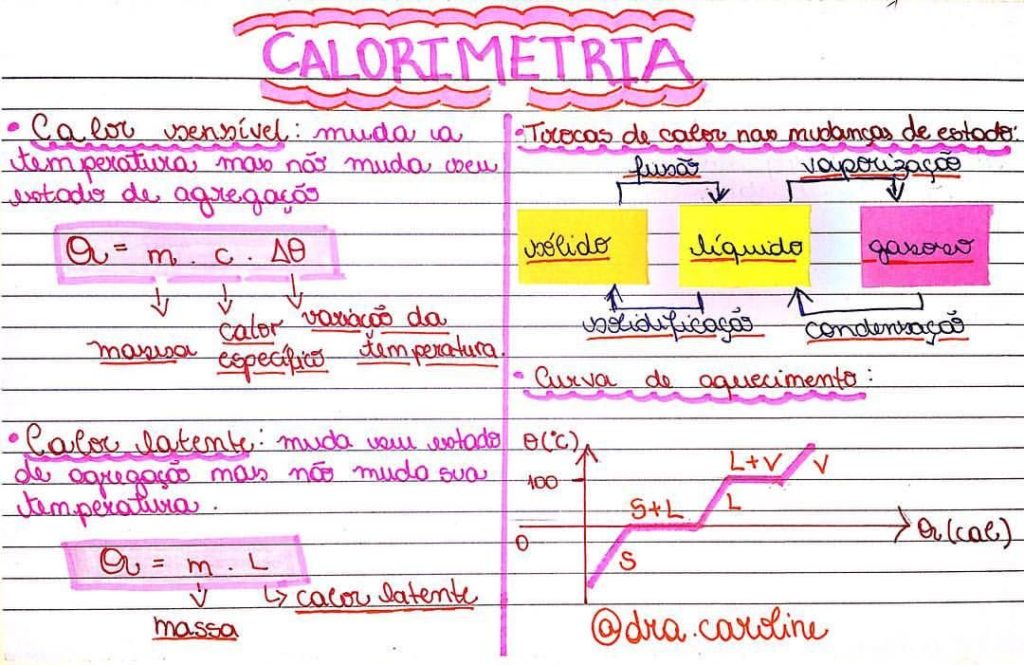 CALORIMETRIA
• Calor sensível: muda a
temperatura mas não muda seu
estado de agregação
Q = m . c . Δθ
massa
calor
específico
variação da
temperatura.
• Calor latente: muda seu estado
de agregação mas não muda sua
temperatura.
Q = m . L
massa
calor latente
• Trocas de calor nas mudanças de estado:
fusão
vaporização
sólido
líquido
gasoso
solidificação
condensação
• Curva de aquecimento:
θ(°C)
100
0
S
S+L
L
L+V
V
Q(cal)
@dra.caroline